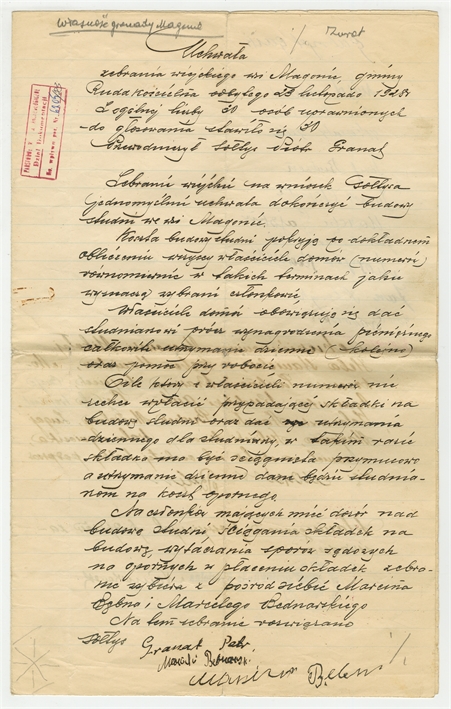 Własność gromady Magonie
Uchwała
zebrania wiejskiego wsi Magonie, gminy
Ruda Kościelna odbytego listopada 1938 r
Z ogólnej liczby 30 osób uprawnionych
do głosowania stawiło się 30
Przewodniczył sołtys Piotr Granat
Zebranie wiejskie na wniosek sołtysa
jednomyślnie uchwala dokończyć budowy
studni we wsi Magonie.
Koszta budowy studni pokryją po dokładnem
obliczeniu wszyscy właściciele domów (numerów)
równomiernie w takich terminach jakie
wyznaczą wybrani członkowie
Właściciele domów obowiązują się dać
studniarzowi prócz wynagrodzenia pieniężnego
całkowite utrzymanie dzienne (kolejno)
oraz pomoc przy robocie
O ile który z właścicieli numeru nie
zechce wpłacić przypadającej składki na
budowę studni oraz dać utrzymania
dziennego dla studniarzy, w takim razie
składka ma być ściągnięta przymusowo
a utrzymanie dzienne dane będzie studnia-
rzom na koszt opornego.
Na członków mających mieć dozór nad
budową studni ściągania składek na
budowę, wytaczania sporów sądowych
na opornych w płaceniu składek zebra-
nie wybiera z pośród siebie Marcina
i Marcelego Bednarskiego
Na tem zebranie rozwiązano
sołtys Granat Piotr